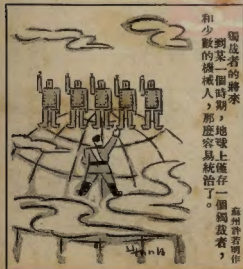 獨裁者的將來
蘇州許若明作
到某一個時期，地球上僅存一個獨裁者，
和少數的機械人，那麼容易統治了。